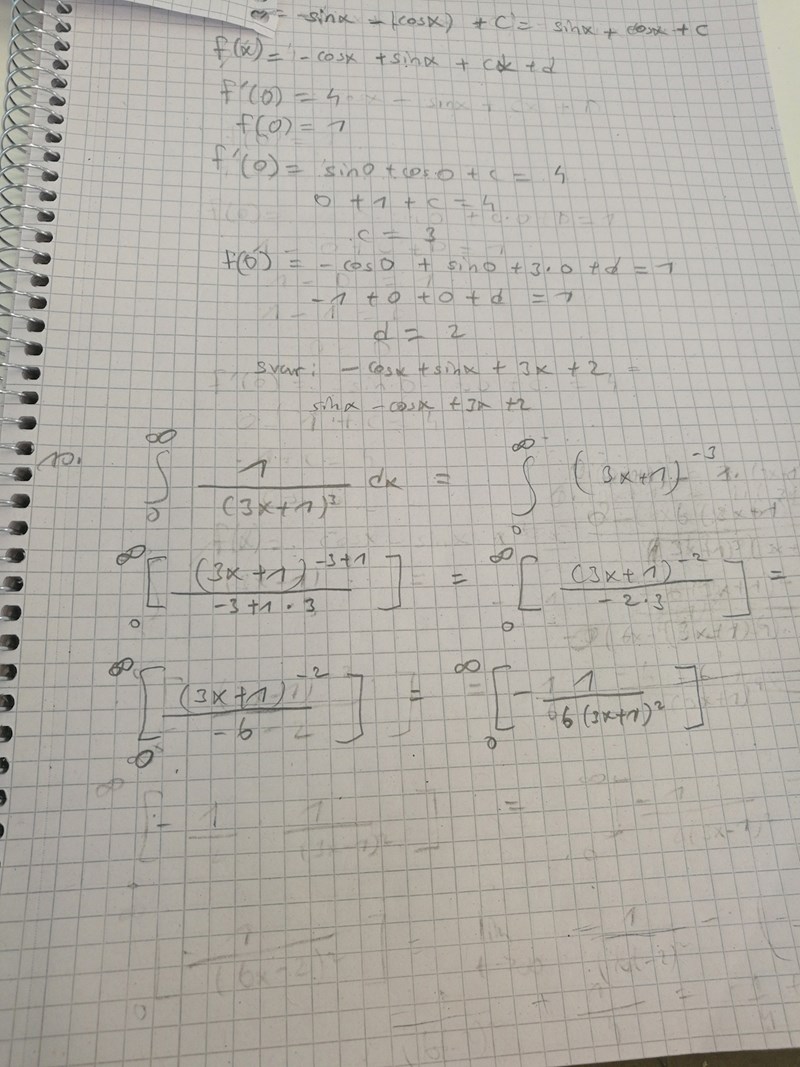 = sinx - (cosx) + C = sinx + cosx + C
f(x) = -cosx + sinx + cx + d
f'(0) = 4
f(0) = 1
f'(0) = sin0 + cos0 + c = 4
0 + 1 + c = 4
c = 3
f(0) = -cos0 + sin0 + 3·0 + d = 1
-1 + 0 + 0 + d = 1
d = 2
svar: -cosx + sinx + 3x + 2 =
sinx - cosx + 3x + 2
10. ∫₀^∞ 1/(3x+1)³ dx = ∫₀^∞ (3x+1)⁻³
₀^∞[(3x+1)^(-3+1)/(-3+1·3)] = ₀^∞[(3x+1)⁻²/(-2·3)] =
₀^∞[(3x+1)⁻²/(-6)] = ₀^∞[-1/(6(3x+1)²)]